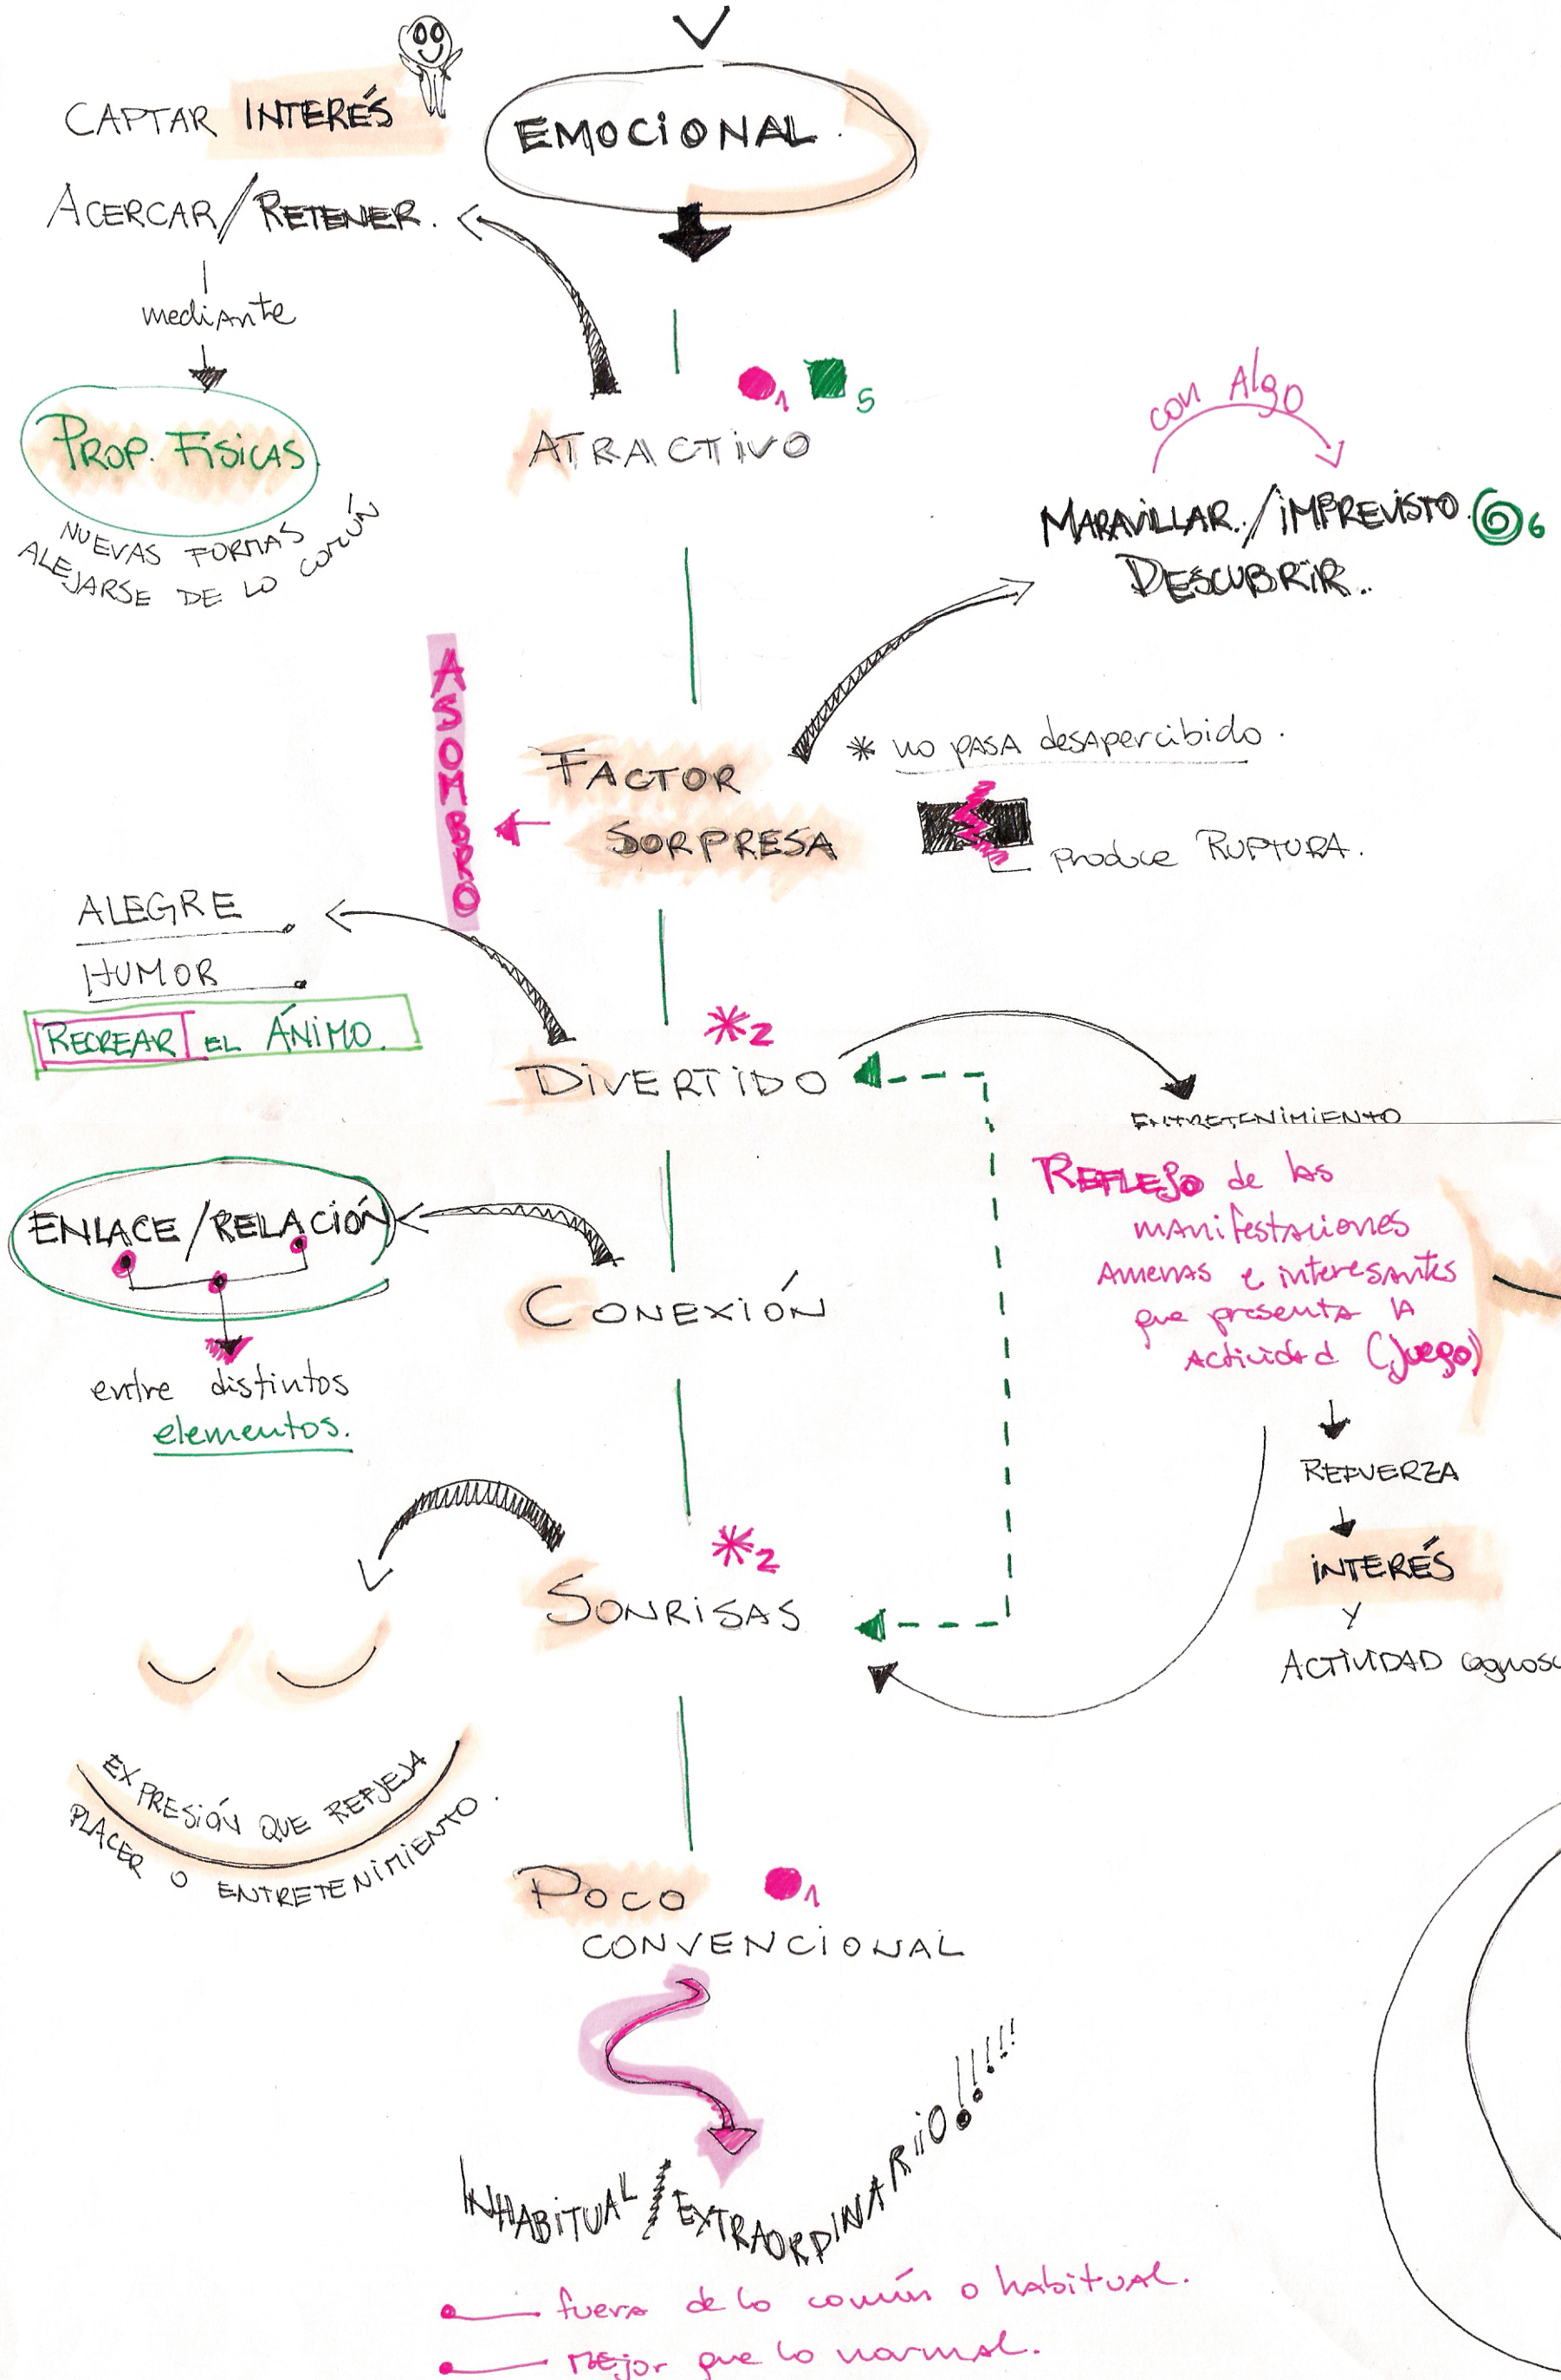 CAPTAR INTERÉS
EMOCIONAL
ACERCAR/RETENER.
mediante
PROP. FÍSICAS
NUEVAS FORMAS
ALEJARSE DE LO COMÚN
1
5
ATRACTIVO
con Algo
MARAVILLAR./IMPREVISTO. 6
DESCUBRIR..
ASOMBRO
FACTOR
SORPRESA
* no PASA desapercibido.
Produce RUPTURA.
ALEGRE
HUMOR
RECREAR EL ÁNIMO.
*2
DIVERTIDO
ENTRETENIMIENTO
REFLEJO de las
manifestaciones
Amenas e interesantes
que presenta la
Actividad (Juego)
ENLACE/RELACIÓN
CONEXIÓN
entre distintos
elementos.
REFUERZA
INTERÉS
Y
ACTIVIDAD
*2
SONRISAS
EXPRESIÓN QUE REFLEJA
PLACER O ENTRETENIMIENTO.
POCO 1
CONVENCIONAL
INHABITUAL/EXTRAORDINARIIO!!!!!
fuera de lo común o habitual.
Mejor que lo normal.